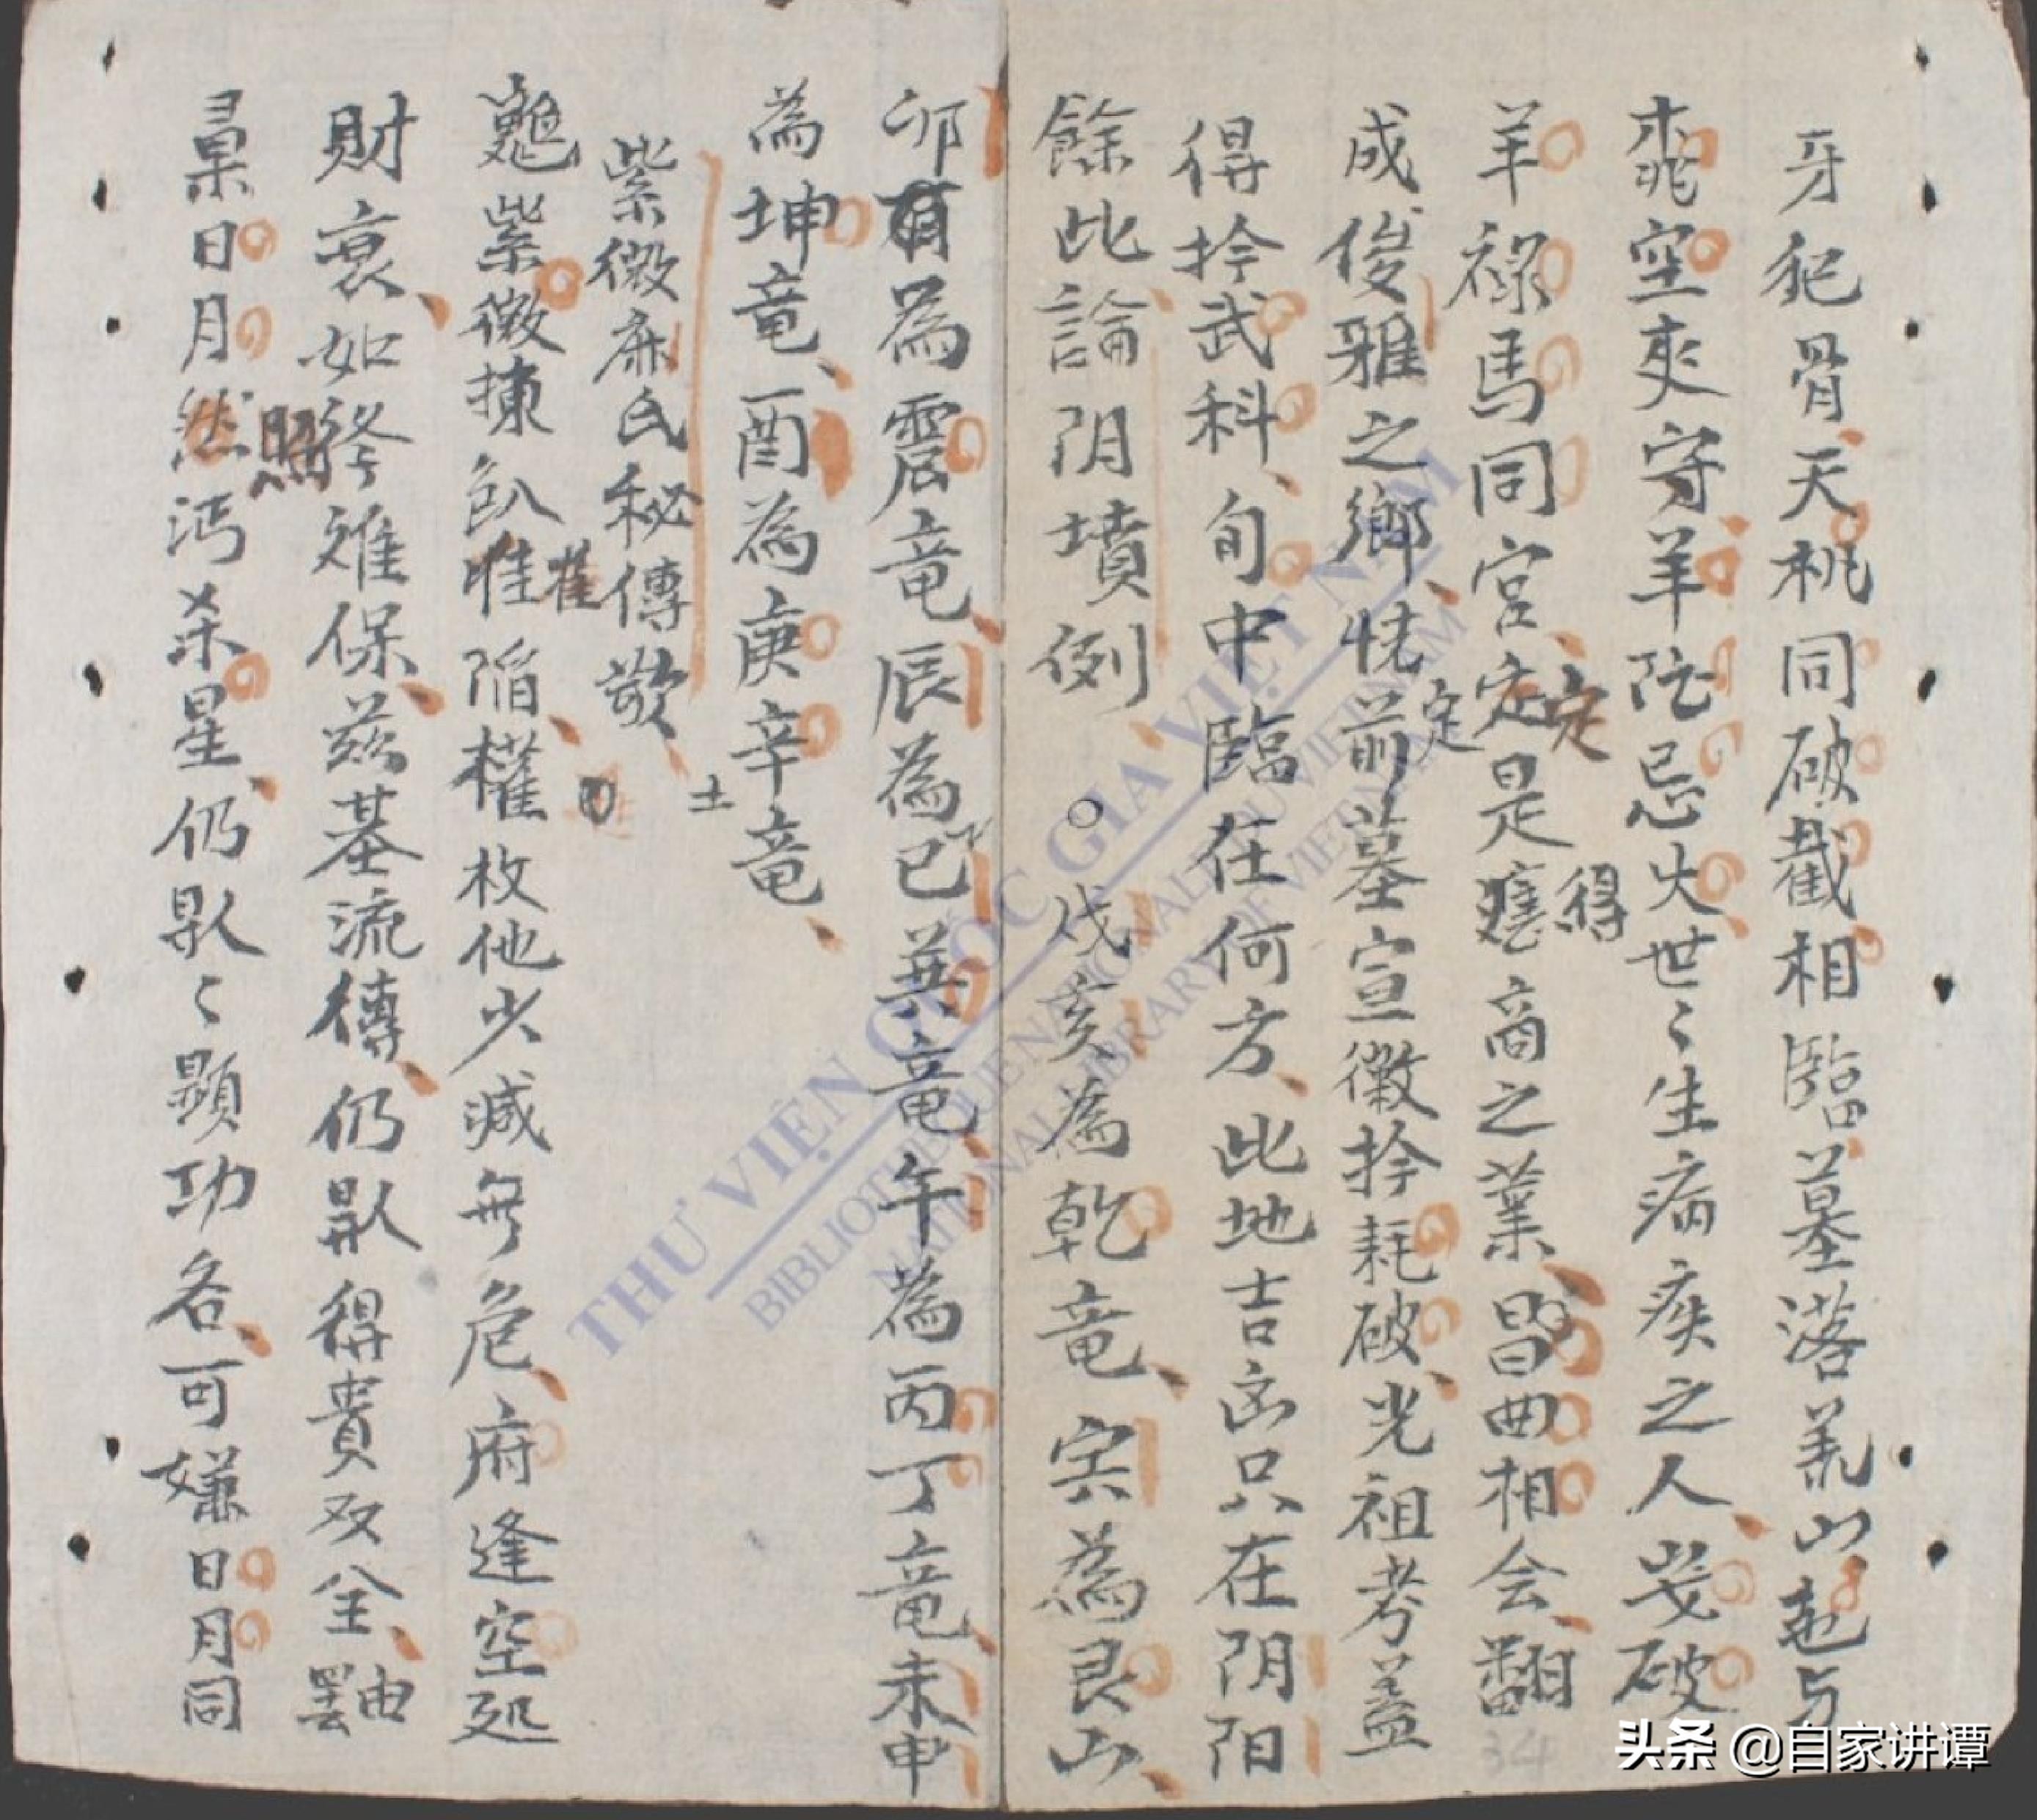 牙犯骨天桃同破截相臨墓落羌山起与
空夾守羊陀忌火世〻生病疾之人𡛔破
羊祿馬同宮定是得商之業昌曲相会翻
成俊雅之鄉恍前墓宣徽扵耗破光祖考益
得扵武科旬中臨在何方此地吉凶只在阴阳
餘此論阴墳例〇戌亥為乾竜宾為艮山
卯為震竜辰為巳巽竜午為丙丁竜未申
為坤竜酉為庚辛竜
紫微麻氏秘傳歌
紫微揀陷權枚他少减無危府逢空处
財衰如終难保兹基流傳仍得貴双全
日月照沔杀星仍〻顕功名可嫌日月同
定
土
THƯ VIỆN QUỐC GIA VIỆT NAM
BIBLIOTHEQUE NATIONALE DU VIETNAM
NATIONAL LIBRARY OF VIETNAM
34
头条 @自家讲谭